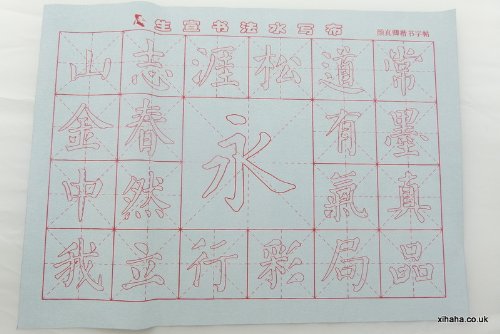 生宣书法水写布
颜真卿楷书字帖
山 志 涯 松 道 常
金 春 永 有 墨
中 然 氣 真
我 立 行 彩 局 品
xihaha.co.uk